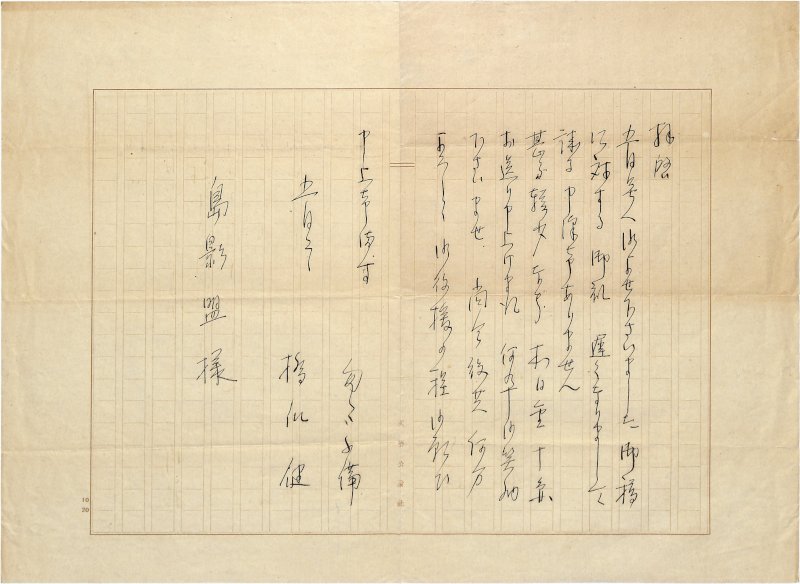 拝啓
五月号へ御よせ下さいました御稿
に対する 御礼 遅くなりまして
誠に申訳ありません
甚だ軽少ながら 本日金十円
お送り申上げました 何卒御笑納
下さいませ 尚今後共 何分
よろしく 御後援の程 御願ひ
申上ます
匆々不備
五月
橋 健
島影盟様
10
20